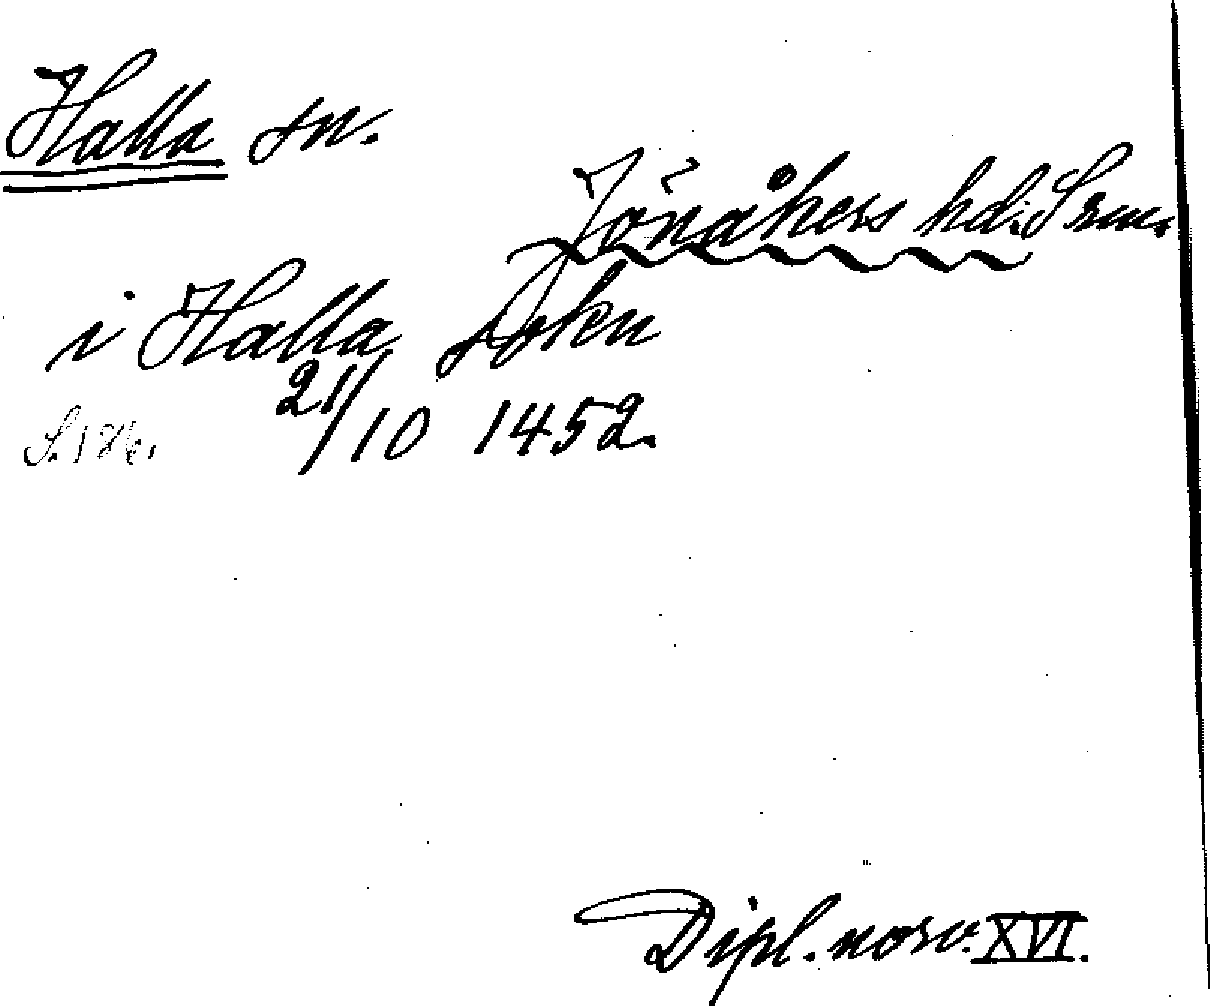 Halla sn.
Jönåkers hd. Srm.
i Halla sokn
21/10 1452.
S. 186.
Dipl. norv. XVI.